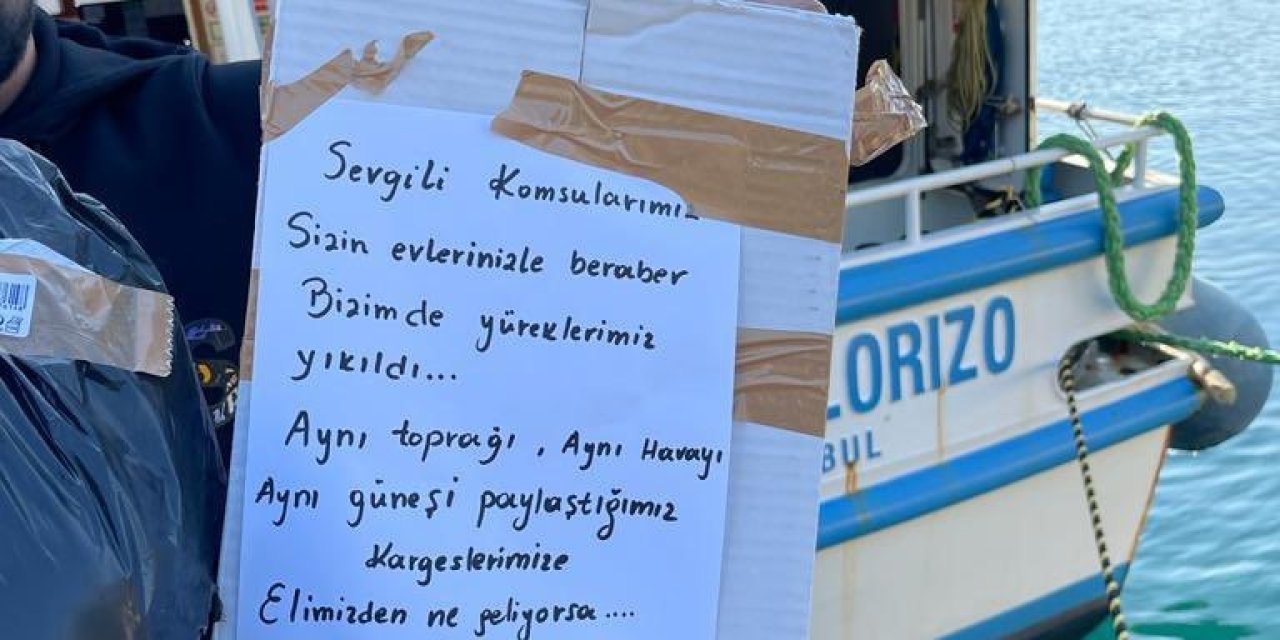 Sevgili Komsularımız
Sizin evlerinizle beraber
Bizimde yüreklerimiz
yıkıldı...
Aynı toprağı, Aynı Havayı
Aynı güneşi paylaştığımız
Kargeslerimize
Elimizden ne geliyorsa....
LORIZO
BUL